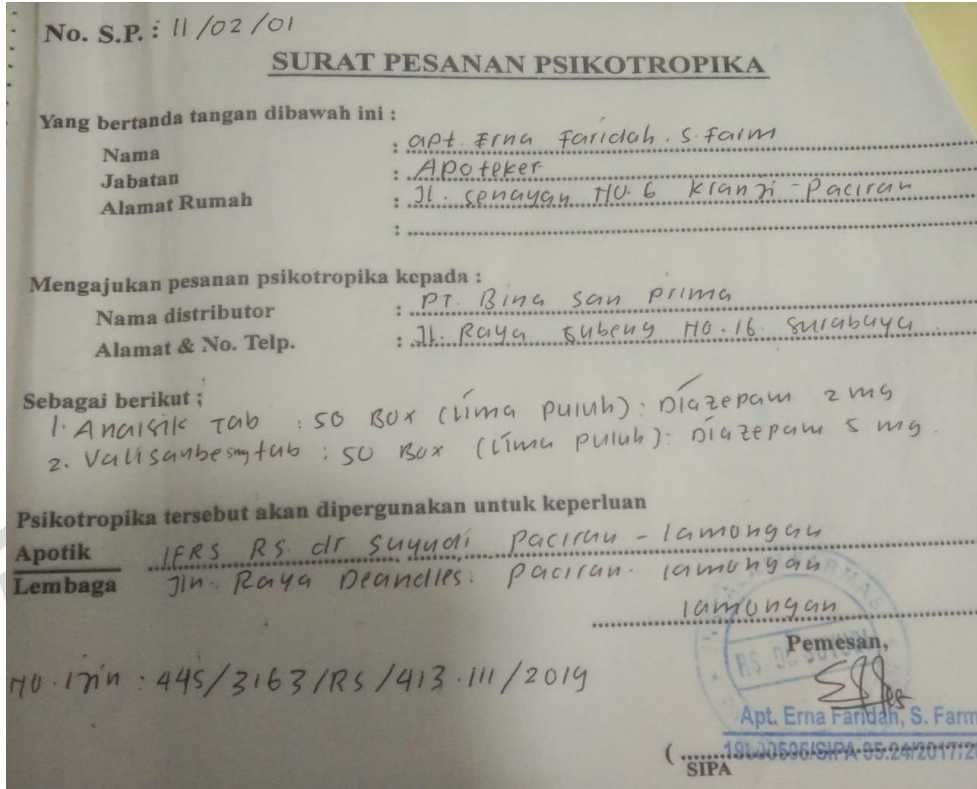 No. S.P. : 11/02/01
SURAT PESANAN PSIKOTROPIKA
Yang bertanda tangan dibawah ini :
Nama : apt. Erna Faridah. S. Farm
Jabatan : Apoteker
Alamat Rumah : Jl. Senayan No. 6 Kranji - Paciran
:
Mengajukan pesanan psikotropika kepada :
Nama distributor : PT. Bina San Prima
Alamat & No. Telp. : Jl. Raya Gubeng No. 16. Surabaya.
Sebagai berikut ;
1. Analsik Tab : 50 Box (Lima puluh) : Diazepam 2 mg
2. Valisanbe 5mg tab : 50 Box (Lima puluh) : Diazepam 5 mg.
Psikotropika tersebut akan dipergunakan untuk keperluan
Apotik IFRS RS. dr Suyudi Paciran - lamongan
Lembaga Jln. Raya Deandles. Paciran. lamongan
lamongan
Pemesan,
RS. Dr SUYUDI
No. Izin : 445/3163/RS/413.111/2019
Apt. Erna Faridah, S. Farm
SIPA